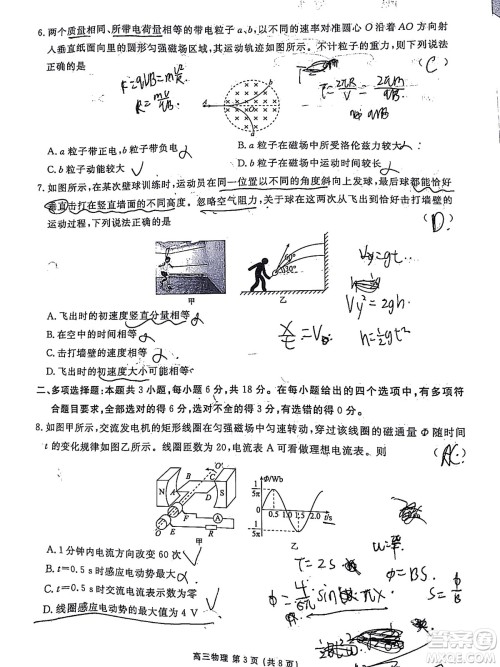 6. 两个质量相同、所带电荷量相等的带电粒子 a、b,以不同的速率对准圆心 O 沿着 AO 方向射
人垂直纸面向里的圆形匀强磁场区域,其运动轨迹如图所示。不计粒子的重力,则下列说法
正确的是
( C )
A. a 粒子带正电,b 粒子带负电
B. a 粒子在磁场中所受洛伦兹力较大
C. b 粒子动能较大
D. b 粒子在磁场中运动时间较长
7. 如图所示,在某次壁球训练时,运动员在同一位置以不同的角度斜向上发球,最后球都能恰好
垂直击打在竖直墙面的不同高度。忽略空气阻力,关于球在这两次从飞出到恰好击打墙壁的
运动过程,下列说法正确的是
( D. )
甲
乙
A. 飞出时的初速度竖直分量相等
B. 在空中的时间相等
C. 击打墙壁的速度相等
D. 飞出时的初速度大小可能相等
Vy=gt
Vy²=2gh
二、多项选择题:本题共 3 小题,每小题 6 分,共 18 分。在每小题给出的四个选项中,有多项符
合题目要求,全部选对的得 6 分,选对但不全的得 3 分,有选错的得 0 分。
8. 如图甲所示,交流发电机的矩形线圈在匀强磁场中匀速转动,穿过该线圈的磁通量 Φ 随时间
t 的变化规律如图乙所示。线圈匝数为 20,电流表 A 可看做理想电流表。则
N
S
Φ/Wb
0.5
1.0
1.5
2.0
t/s
甲
乙
A. 1 分钟内电流方向改变 60 次
B. t=0.5 s 时感应电动势最大
C. t=0.5 s 时电流表示数为零
D. 线圈感应电动势的最大值为 4 V
T=2s
Φ=BS.
高三物理 第 3 页 (共 8 页)
答案圈
MXQE.COM